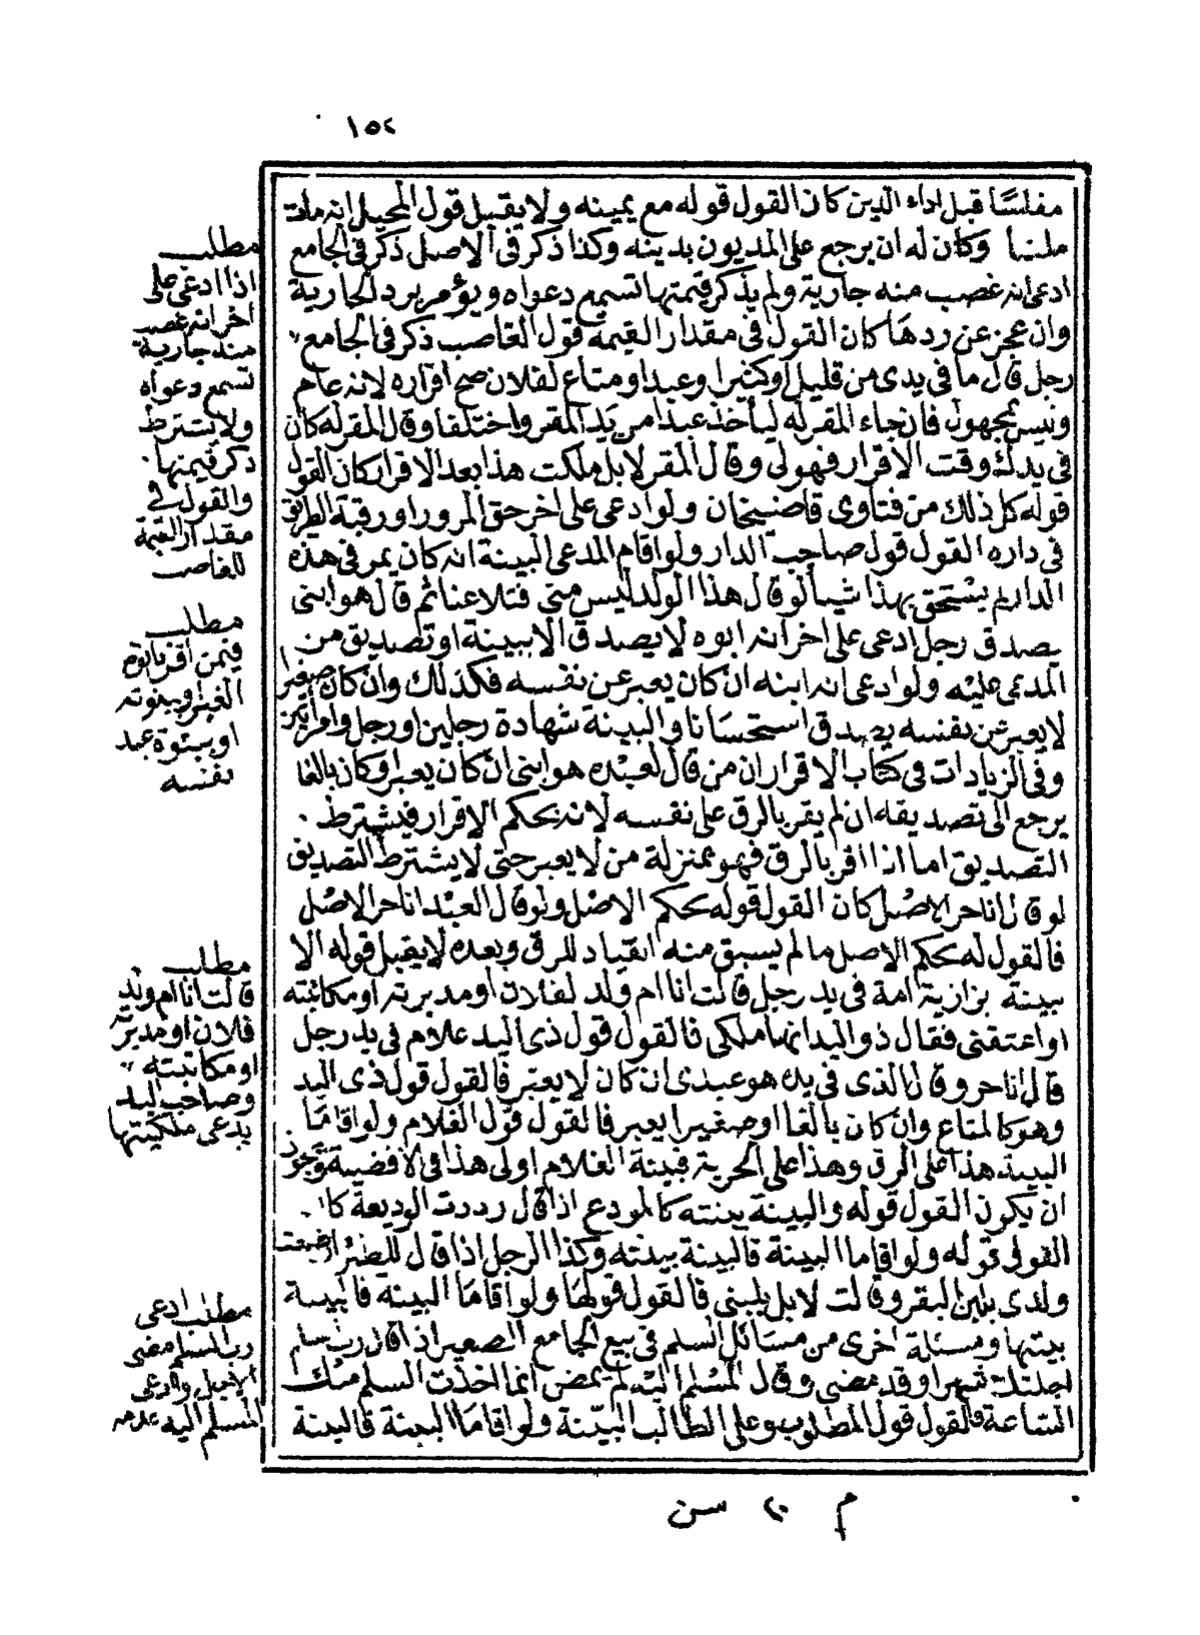 ١٥٢
مفلسًا قبل اداء الدين كان القول قوله مع يمينه ولا يقبل قول المحيل انه مات
مليئا وكان له ان يرجع على المديون بدينه وكذا ذكر فى الاصل ذكر فى الجامع
ادعى انه غصب منه جارية ولم يذكر قيمتها تسمع دعواه ويؤمر برد الجارية
وان عجز عن ردها كان القول فى مقدار القيمة قول الغاصب ذكر فى الجامع
رجل قال ما فى يدى من قليل او كثير او عبد او متاع لفلان صح اقراره لانه عام
وليس بمجهول فان جاء المقر له ليأخذ عبدا من يد المقر واختلفا وقال المقر له كان
فى يدك وقت الاقرار فهو لى وقال المقر لا بل ملكت هذا بعد الاقرار كان القول
قوله كل ذلك من فتاوى قاضيخان ولو ادعى على اخر حق المرور او رقبة الطريق
فى داره القول قول صاحب الدار ولو اقام المدعى البينة انه كان يمر فى هذه
الدار لم يستحق بهذا شيأ لو قال هذا الولد ليس منى فتلاعنا ثم قال هو ابنى
يصدق رجل ادعى على اخر انه ابوه لا يصدق الا ببينة او تصديق من
المدعى عليه ولو ادعى انه ابنه ان كان يعبر عن نفسه فكذلك وان كان صغيرا
لا يعبر عن نفسه يصدق استحسانا والبينة شهادة رجلين او رجل وامرأتين
وفى الزيادات فى كتاب الاقرار ان من قال لعبده هو ابنى ان كان يعبر او كان بالغا
يرجع الى تصديقه ان لم يقر بالرق على نفسه لانه بحكم الاقرار فيشترط
التصديق اما اذا اقر بالرق فهو بمنزلة من لا يعبر حتى لا يشترط التصديق
لو قال انا حر الاصل كان القول قوله بحكم الاصل ولو قال العبد انا حر الاصل
فالقول له بحكم الاصل ما لم يسبق منه انقياد للرق وبعده لا يقبل قوله الا
ببينة بزازية امة فى يد رجل قالت انا ام ولد لفلان او مدبرته او مكاتبته
او اعتقنى فقال ذو اليد انها ملكى فالقول قول ذى اليد غلام فى يد رجل
قال انا حر وقال الذى فى يده هو عبدى ان كان لا يعبر فالقول قول ذى اليد
وهو كالمتاع وان كان بالغا او صغيرا يعبر فالقول قول الغلام ولو اقاما
البينة هذا على الرق وهذا على الحرية فبينة الغلام اولى هذا فى الاقضية ويجوز
ان يكون القول قوله والبينة بينته كالمودع اذا قال رددت الوديعة كان
القول قوله ولو اقاما البينة فالبينة بينته وكذا الرجل اذا قال للظئر ارضعت
ولدى بلبن البقر وقالت لا بل بلبنى فالقول قولها ولو اقاما البينة فالبينة
بينتها ومسئلة اخرى من مسائل السلم فى بيع الجامع الصغير اذا قال رب سلم
اجلتك شهرا وقد مضى وقال المسلم اليه لم يمض انما اخذت السلم منك
الساعة فالقول قول المطلوب وعلى الطالب البينة ولو اقاما البينة فالبينة
مطلب
اذا ادعى على
اخر انه غصب
منه جارية
تسمع دعواه
ولا يشترط
ذكر قيمتها
والقول فى
مقدار القيمة
للغاصب
مطلب
فيمن اقر بابوة
الغير او بنوته
او ببنوة عبد
نفسه
مطلب
قالت انا ام ولد
فلان او مدبرته
او مكاتبته
وصاحب اليد
يدعى ملكيتها
مطلب ادعى
رب السلم مضى
الاجل وادعى
المسلم اليه عدمه
م ٢٠ سن